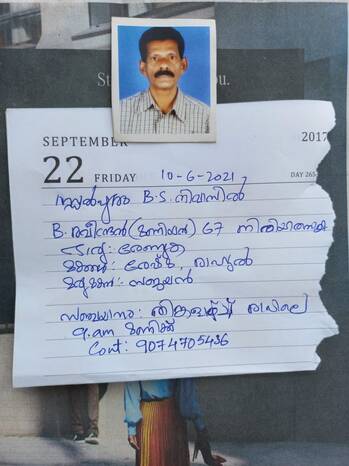 St ou.
SEPTEMBER 2017
22 FRIDAY 10-6-2021, DAY 265
B.S. നിവാസിൽ
B. രവീന്ദ്രൻ (മണിയൻ) 67 നിര്യാതനായി
ഭാര്യ: രേണുക
മക്കൾ: രേഷ്മ, രാഹുൽ
മരുമകൻ: സജുലൻ
സഞ്ചയനം: തിങ്കളാഴ്ച രാവിലെ
9.am മണിക്ക്
Cont: 9074705436